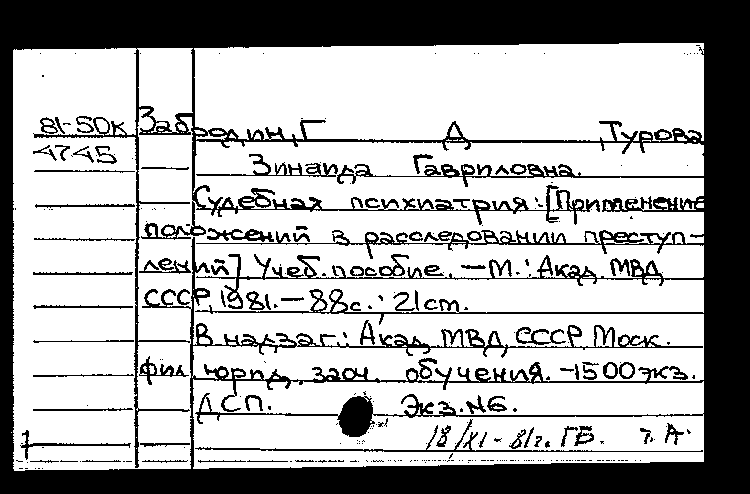 81-50к Забродин, Г Д , Турова
4745 Зинаида Гавриловна.
Судебная психиатрия: [Применение
положений в расследовании преступ-
лений]. Учеб. пособие. — М.: Акад. МВД
СССР, 1981. — 88с.; 21 cm.
В надзаг.: Акад. МВД СССР, Моск.
фил. юрид. заоч. обучения. — 1500 экз.
ДСП. Экз. №6.
18/XI - 81г. ГБ. т. А.